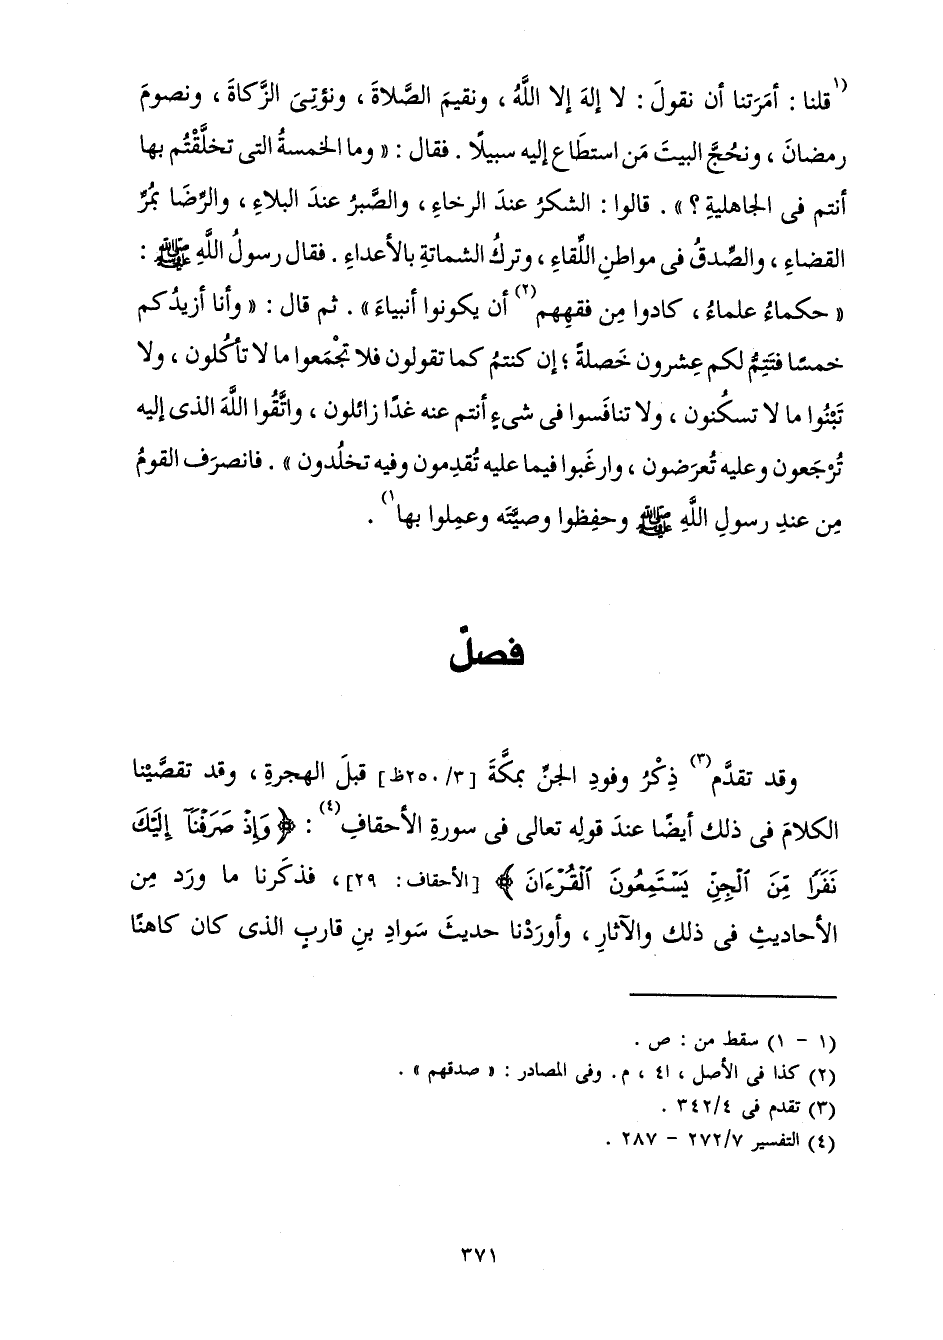 (١قلنا : أمَرَتنا أن نقولَ : لا إلهَ إلا اللَّهُ ، ونقيمَ الصَّلاةَ ، ونؤتِىَ الزَّكاةَ ، ونصومَ
رمضانَ ، ونحُجَّ البيتَ مَن استطَاع إليه سبيلًا . فقال : « وما الخمسةُ التى تخلَّقْتُم بها
أنتم فى الجاهليةِ ؟ » . قالوا : الشكرُ عندَ الرخاءِ ، والصَّبرُ عندَ البلاءِ ، والرِّضَا بمُرِّ
القضاءِ ، والصِّدقُ فى مواطنِ اللِّقاءِ ، وتركُ الشماتةِ بالأعداءِ . فقال رسولُ اللَّهِ ﷺ :
« حكماءُ علماءُ ، كادوا مِن فقهِهم(٢) أن يكونوا أنبياءَ » . ثم قال : « وأنا أزيدُكم
خمسًا فتَتِمُّ لكم عِشرون خَصلةً ؛ إن كنتمُ كما تقولون فلا تجْمَعوا ما لا تأكُلون ، ولا
تَبْنُوا ما لا تسكُنون ، ولا تنافَسوا فى شىءٍ أنتم عنه غدًا زائلون ، واتَّقُوا اللَّهَ الذى إليه
تُرْجَعون وعليه تُعرَضون ، وارغَبوا فيما عليه تُقدِمون وفيه تخلُدون » . فانصرَف القومُ
مِن عندِ رسولِ اللَّهِ ﷺ وحفِظوا وصيَّتَه وعمِلوا بها١) .
فصلٌ
وقد تقدَّم(٣) ذِكْرُ وفودِ الجنِّ بمكَّةَ [٣/ ٢٥٠ظ] قبلَ الهجرةِ ، وقد تقصَّيْنا
الكلامَ فى ذلك أيضًا عندَ قولِه تعالى فى سورةِ الأحقافِ(٤) : ﴿ وَإِذْ صَرَفْنَآ إِلَيْكَ
نَفَرًا مِّنَ ٱلْجِنِّ يَسْتَمِعُونَ ٱلْقُرْءَانَ ﴾ [الأحقاف: ٢٩] ، فذكَرنا ما ورَد مِن
الأحاديثِ فى ذلك والآثارِ ، وأورَدْنا حديثَ سَوادِ بنِ قاربٍ الذى كان كاهنًا
(١ - ١) سقط من : ص .
(٢) كذا فى الأصل ، ٤١ ، م . وفى المصادر : « صدقهم » .
(٣) تقدم فى ٣٤٢/٤ .
(٤) التفسير ٢٧٢/٧ - ٢٨٧ .
٣٧١